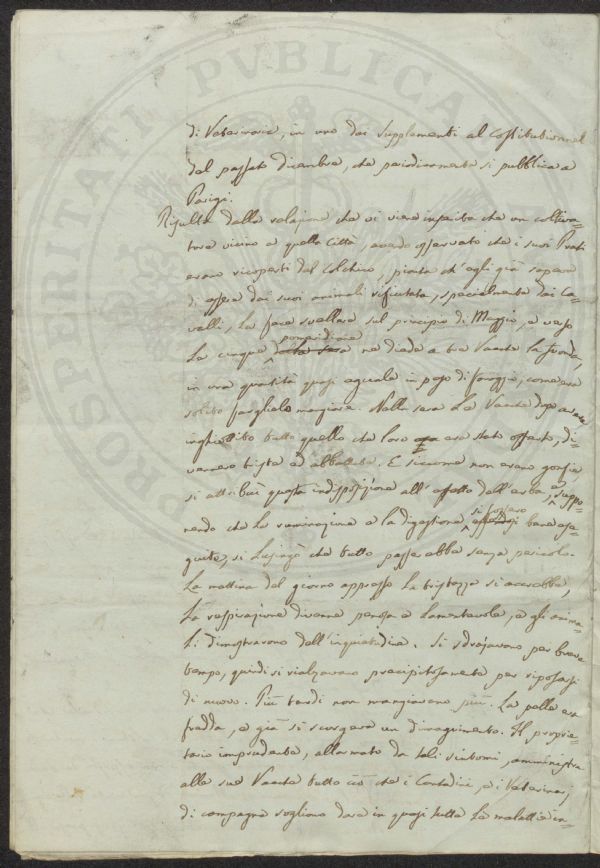 di Veterinaria, in uno dei Supplementi al Costitutionnel
del passato dicembre, che periodicamente si pubblica a
Parigi.
Risulta dalla relazione che vi viene inserita che un coltiva-
tore vicino a quella Città, avendo osservato che i suoi Prati
erano ricoperti dal Colchico, pianta ch'egli già sapeva
di essere dai suoi animali rifiutata, specialmente dai Ca-
valli, la fece svellere sul principio di Maggio, e verso
le cinque pomeridiane ne diede a tre Vacche la fronda,
in una quantità quasi eguale in peso di foraggio, come era
solito farglielo mangiare. Nella sera le Vacche dopo avere
inghiottito tutto quello che loro era stato offerto, di-
vennero triste ed abbattute. E siccome non erano gonfie,
si attribuì questa indisposizione all'effetto dell'erba, e suppo-
nendo che la ruminazione e la digestione si fossero bene ese-
guite, si lusingò che tutto passerebbe senza pericolo.
La mattina del giorno appresso la tristezza si accrebbe,
la respirazione divenne penosa e lamentevole, e gli anima-
li dimostravano dell'inquietudine. Si sdrajavano per breve
tempo, quindi si rialzavano precipitosamente per riposarsi
di nuovo. Più tardi non mangiavano più. La pelle era
fredda, e già si scorgeva un dimagrimento. Il proprie-
tario imprudente, allarmato da tali sintomi, amministra
alle sue Vacche tutto ciò che i Contadini, e i Veterinarj
di campagna sogliono dare in quasi tutte le malattie in-
PROSPERITATI PUBLICAE